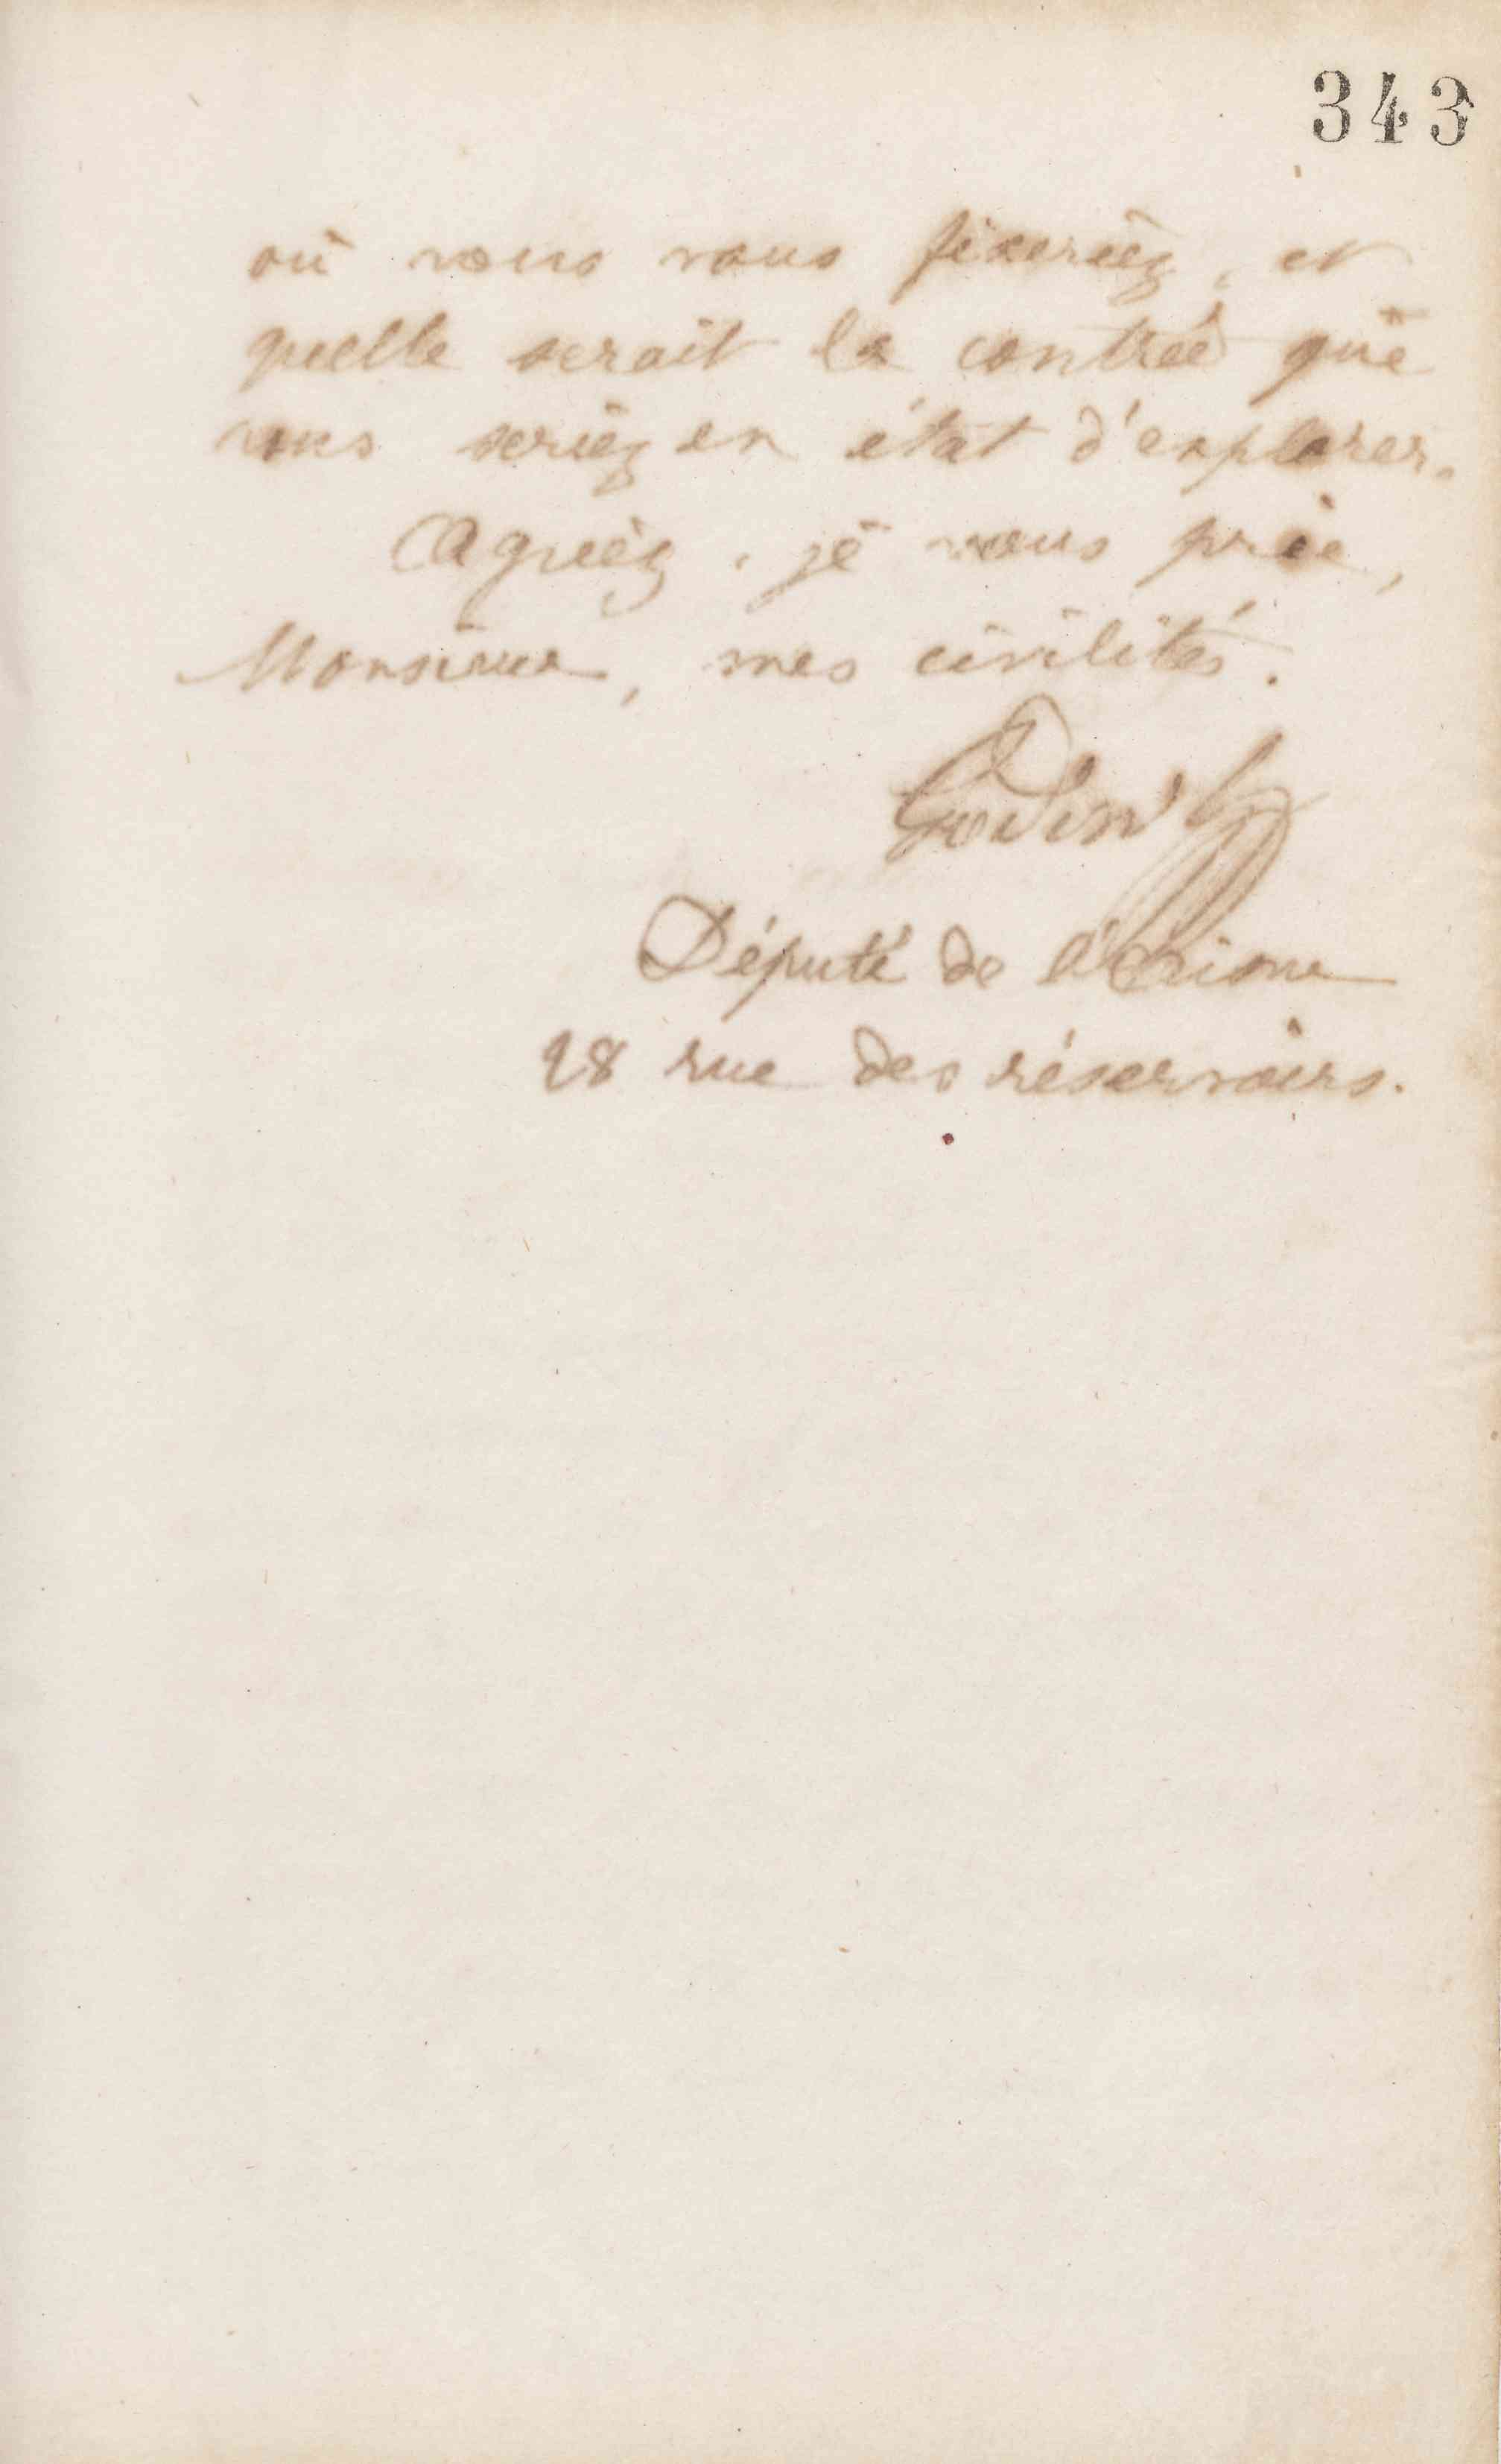 343
où vous vous fixeriez, et
quelle serait la contrée que
vous seriez en état d'explorer.
Agréez, je vous prie,
Monsieur, mes civilités.
Godin
Député de l'Aisne
28 rue des réservoirs.